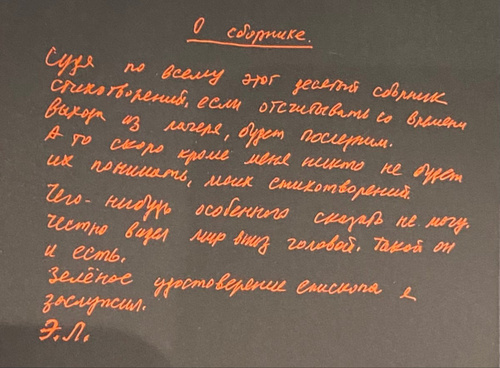 О сборнике.
Судя по всему этот десятый сборник
стихотворений, если отсчитывать со времени
выхода из лагеря, будет последним.
А то скоро кроме меня никто не будет
их понимать, моих стихотворений.
Чего-нибудь особенного сказать не могу.
Честно видел мир вниз головой. Такой он
и есть.
Зелёное удостоверение епископа я
заслужил.
Э.Л.